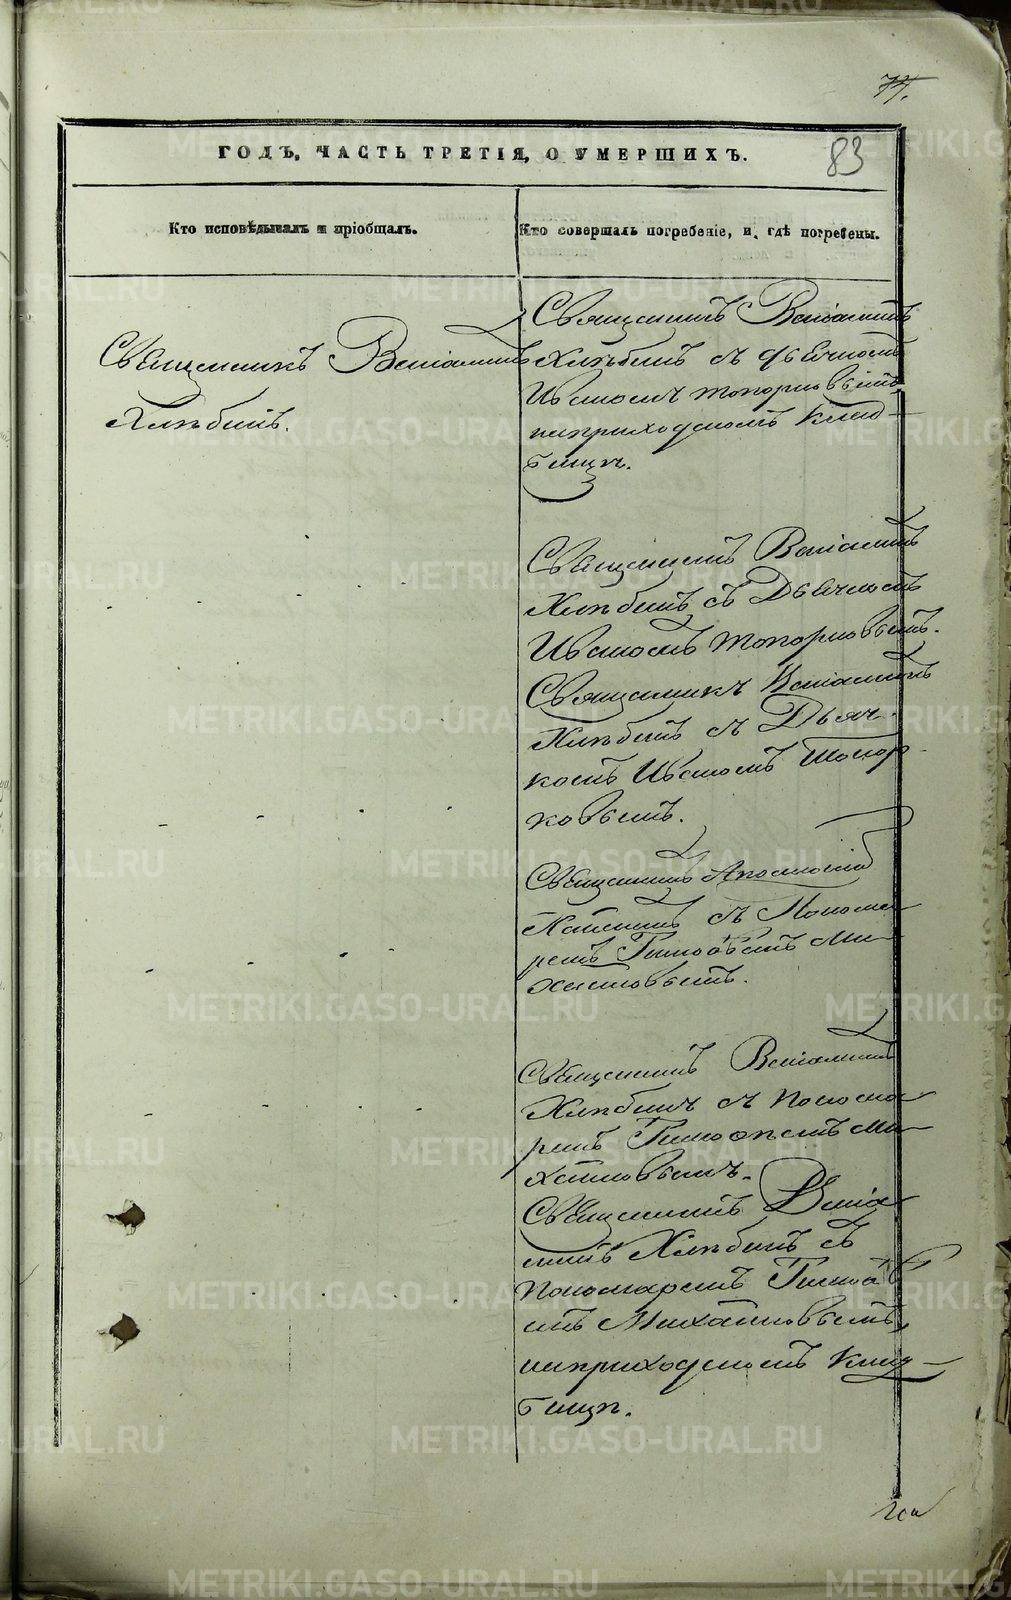 83
ГОДЪ, ЧАСТЬ ТРЕТІЯ, О УМЕРШИХЪ.
Кто исповѣдывалъ и пріобщалъ.
Кто совершалъ погребеніе, и гдѣ погребены.
Священникъ Веніаминъ
Хлѣбинъ.
Священникъ Веніаминъ
Хлѣбинъ съ дьячкомъ
Иваномъ Топорковымъ,
наприходскомъ клад-
бищѣ.
Священникъ Веніаминъ
Хлѣбинъ съ Дьячкомъ
Иваномъ Топорковымъ.
Священникъ Веніаминъ
Хлѣбинъ съ Дьяч-
комъ Иваномъ Топор-
ковымъ.
Священникъ
съ Понома-
ремъ Тимофѣемъ Ми-
хайловымъ.
Священникъ Веніаминъ
Хлѣбинъ съ Понома-
ремъ Тимофѣемъ Ми-
хайловымъ.
Священникъ Веніа-
минъ Хлѣбинъ съ
Пономаремъ Тимофѣ-
емъ Михайловымъ,
наприходскомъ клад-
бищѣ.
METRIKI.GASO-URAL.RU